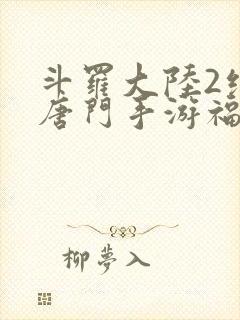 斗羅大陸2
唐門手游福
柳夢入